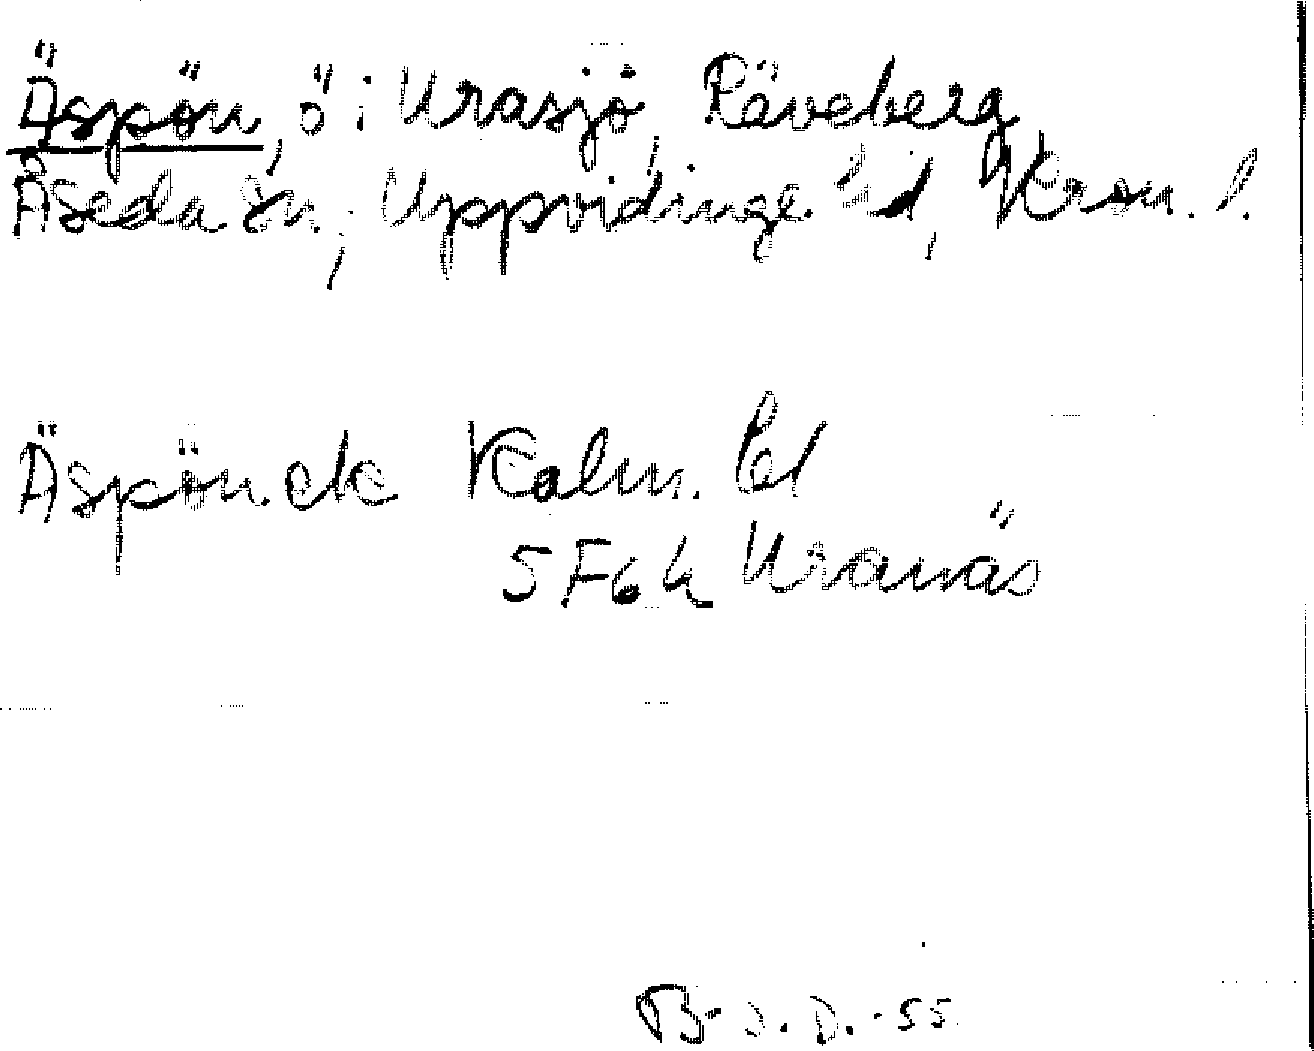 Äspön, ö i Urasjö, Räveberg
Åseda sn, Uppvidinge hd, Kron. l.
Äspön ek Kalm. bl
5F6h Uranäs
B-J. D. -55.